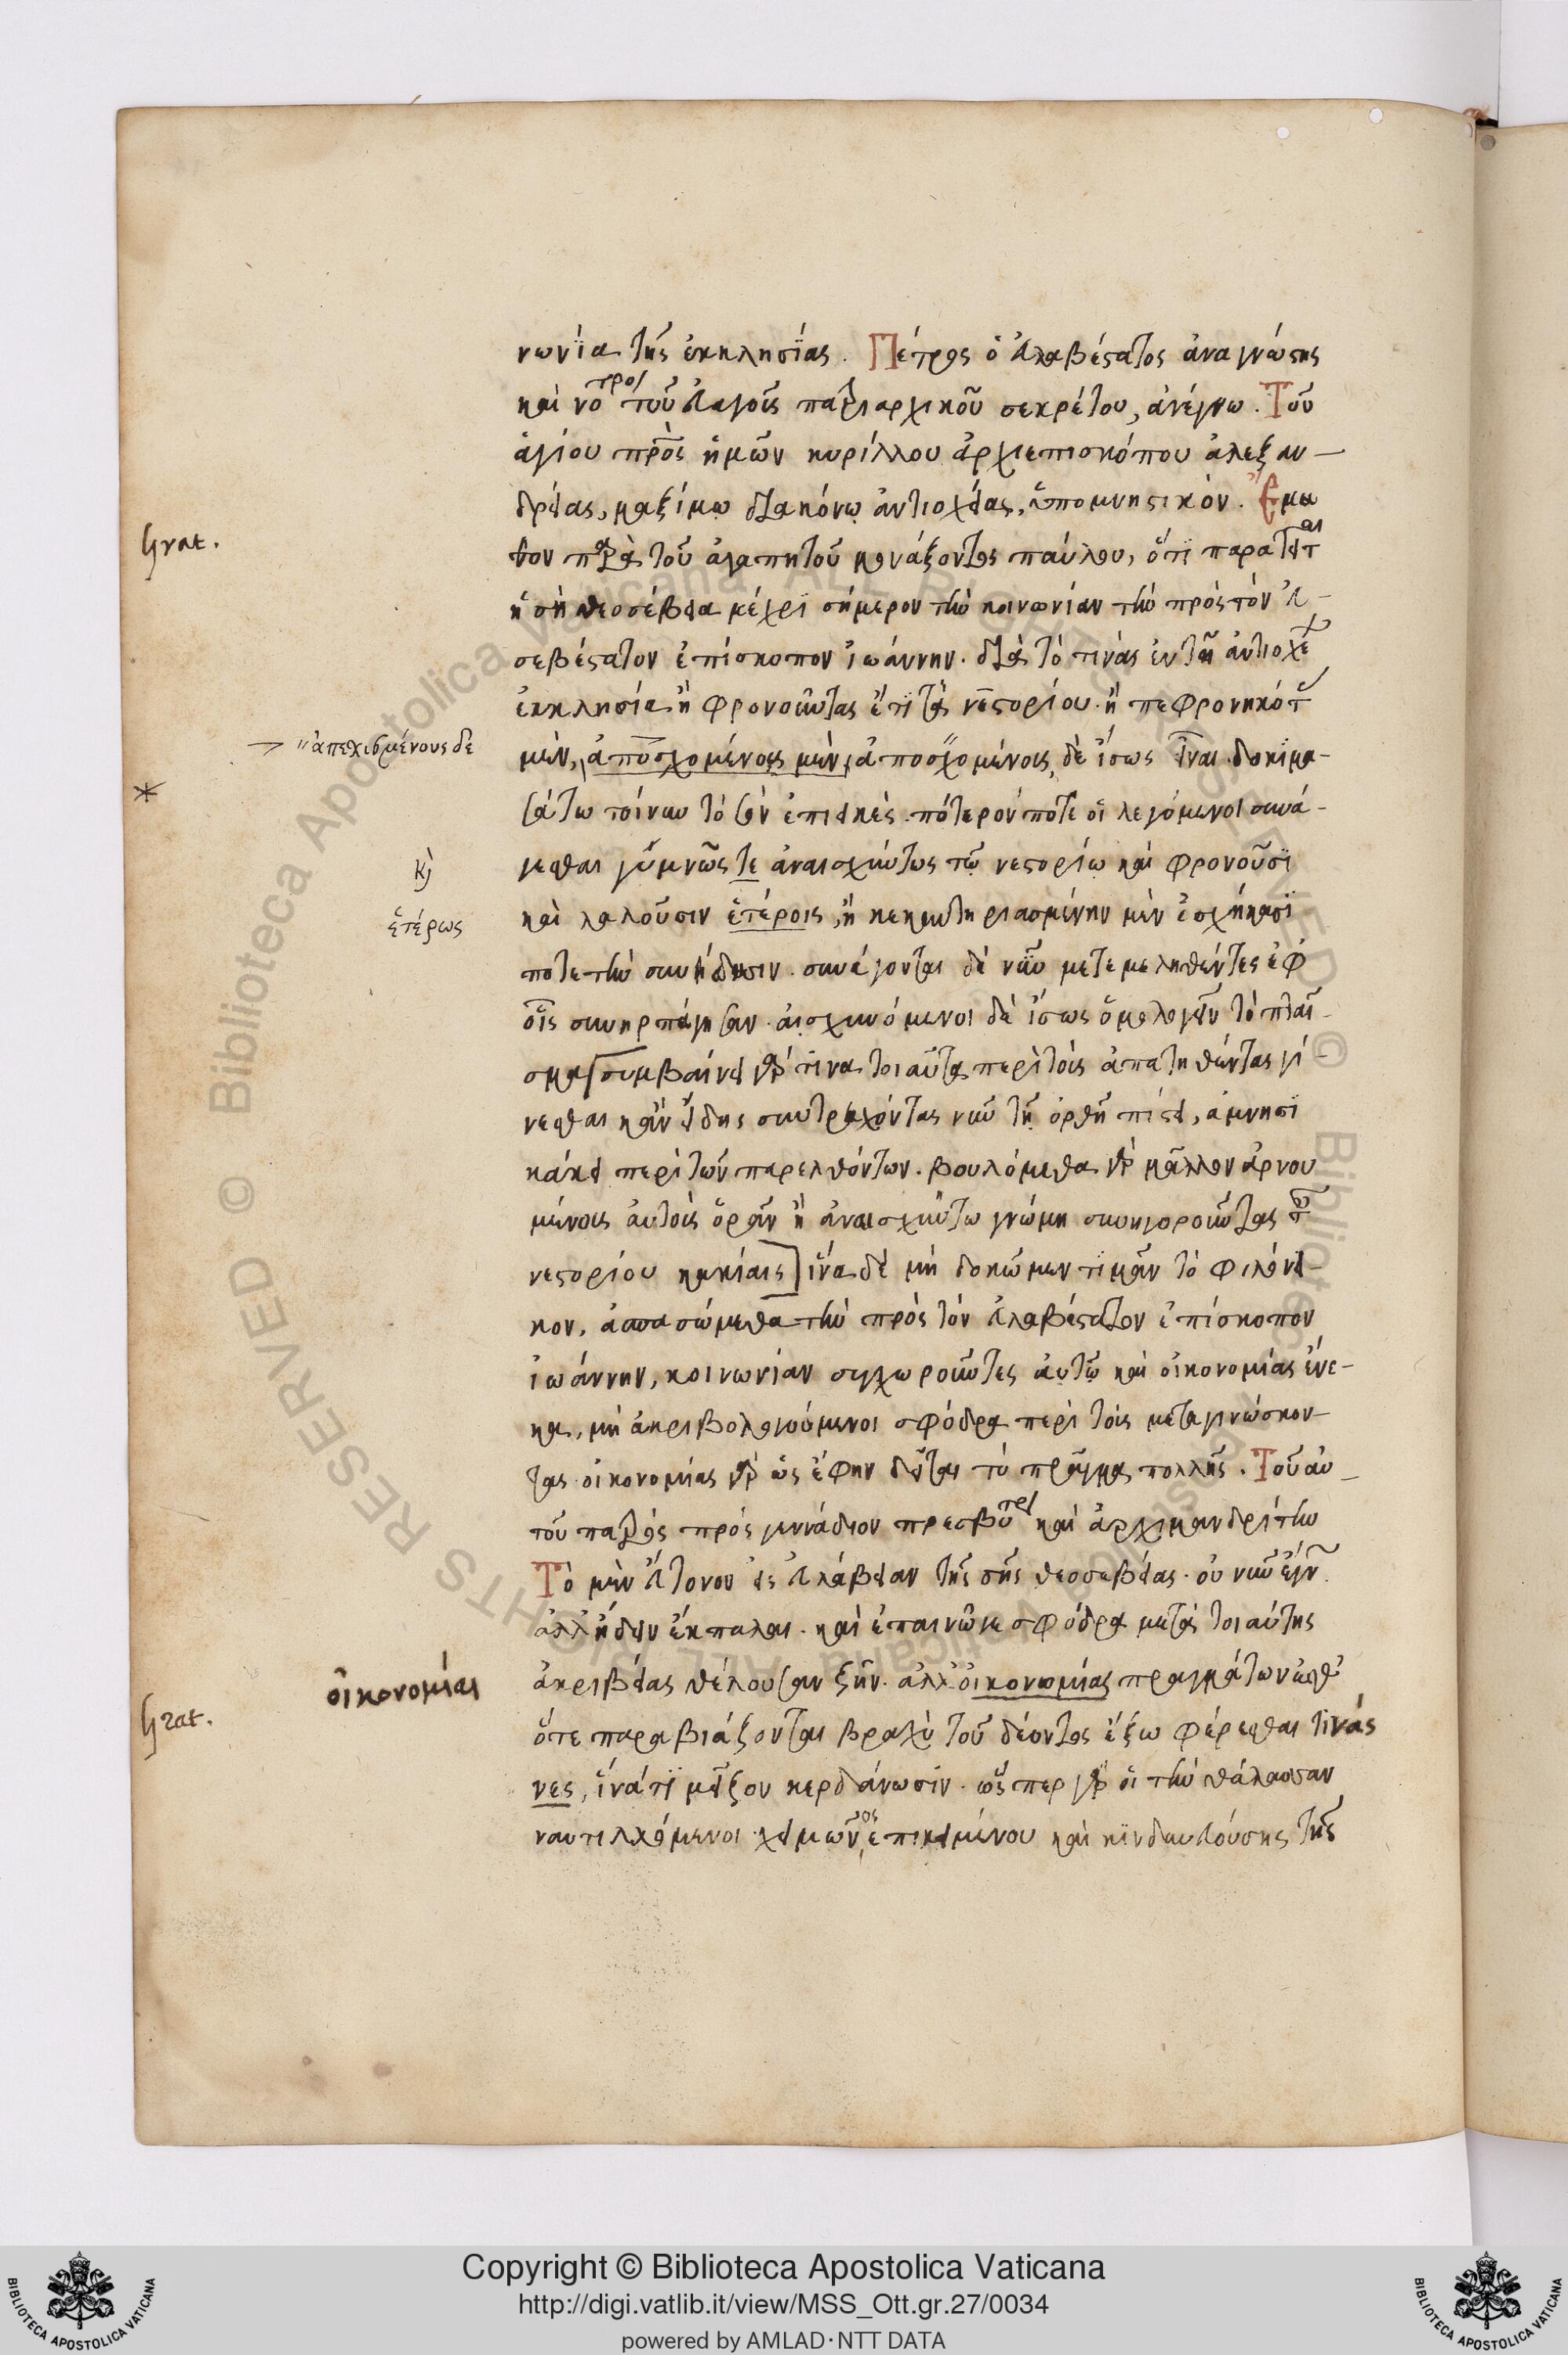 νωνΐα τῆς ἐκκλησΐας. Πέτρος ὁ εὐλαβέστατος ἀναγνώστης
καὶ νοτρο/ τοῦ εὐαγοῦς πατριαρχικοῦ σεκρέτου, ἀνέγνω. Τοῦ
ἁγίου πρ̅ὸς ἡμῶν κυρίλλου ἀρχιεπισκόπου ἀλεξαν-
δρείας, μαξίμω διακόνω ἀντιοχείας, ὑπομνηστικὸν. Ἔμα
θον παρὰ τοῦ ἀγαπητοῦ μονάζοντος παύλου, ὅτϊ παραιτεῖται
ἡ σὴ θεοσέβεια μέχρϊ σήμερον τὴν κοινωνίαν τὴν πρὸς τὸν εὐ-
σεβέστατον ἐπίσκοπον ἰωάννην. διὰ τὸ τινὰς ἐν τῆ ἀντιοχε
ἐκκλησία ἢ φρονοῦντας ἔτϊ τὰ νεστορίου. ἢ πεφρονηκότ
μὲν, ἀποσχομένους μὲν, ἀποσχομένους, δὲ ἴσως εἶναι. δοκιμα-
σάτω τοίνυν τὸ σὸν ἐπιεικὲς. πότερόν ποτε οἱ λεγόμενοι συνά-
γεσθαι γυμνῶς τε ἀναισχύντως τῶ νεστορίω καὶ φρονοῦσϊ
καὶ λαλοῦσιν ἑτέροις, ἢ κεκαυτηριασμένην μὲν ἐσχήκασϊ
ποτε τὴν συνείδησιν. συνάγονται δὲ νῦν μετεμεληθέντες ἐφ
οἷς συνηρπάγησαν. αἰσχυνόμενοι δὲ ἴσως ὁμολογεῖν τὸ πταῖ-
σμα συμβαίνει γὰρ τϊνα τοιαῦτα περὶ τοὺς ἀπατηθέντας γί-
νεσθαι κἂν εἴδης συντρέχοντας νῦν τῆ ὀρθῆ πίστει, ἀμνησϊ
κάκει περὶ τῶν παρελθόντων. βουλόμεθα γὰρ μᾶλλον ἀρνου
μένους αὐτοὺς ὁρᾶν ἢ ἀναισχύντω γνώμη συνηγοροῦντας τ
νεστορίου κακίαις] ἵνα δὲ μὴ δοκῶμεν τϊμᾶν τὸ φιλόνει-
κον, ἀσπασώμεθα τὴν πρὸς τὸν εὐλαβέστατον ἐπίσκοπον
ἰωάννην, κοινωνίαν συγχωροῦντες αὐτῶ καὶ οἰκονομίας ἕνε-
κα, μὴ ἀκριβολογούμενοι σφόδρα περὶ τοὺς μεταγινώσκον-
τας. οἰκονομίας γὰρ ὡς ἔφην δεῖται τὸ πρᾶγμα πολλῆς. Τοῦ αὐ-
τοῦ πατρὸς πρὸς γεννάδιον πρεσβύτερ καὶ ἀρχιμανδρίτην
Τὸ μὲν εὔτονον εἰς εὐλάβειαν τῆς σῆς θεοσεβείας. οὐ νῦν ἔγν
ἀλλ ἤδειν ἔκπαλαι. καὶ ἐπαινῶγε σφόδρα μετὰ τοιαύτης
ἀκριβείας θέλουσαν ζῆν. ἀλλ οἰκονομίας πραγμάτων ἔσθ
ὅτε παραβιάζονται βραχὺ τοῦ δέοντος ἔξω φέρεσθαι τινάς
νες, ἵνα τϊ μεῖζον κερδάνωσϊν. ὥσπερ γὰρ οἱ τὴν θάλασσαν
ναυτιλλόμενοι χειμῶνος ἐπικειμένου καὶ κϊνδυνευούσης τῆς
Grat.
"ἀπεχισμένους δὲ
*
κ̀
ἑτέρως
οἰκονομίαι
Grat.
Copyright © Biblioteca Apostolica Vaticana
http://digi.vatlib.it/view/MSS_Ott.gr.27/0034
powered by AMLAD·NTT DATA
BIBLIOTECA APOSTOLICA VATICANA
BIBLIOTECA APOSTOLICA VATICANA